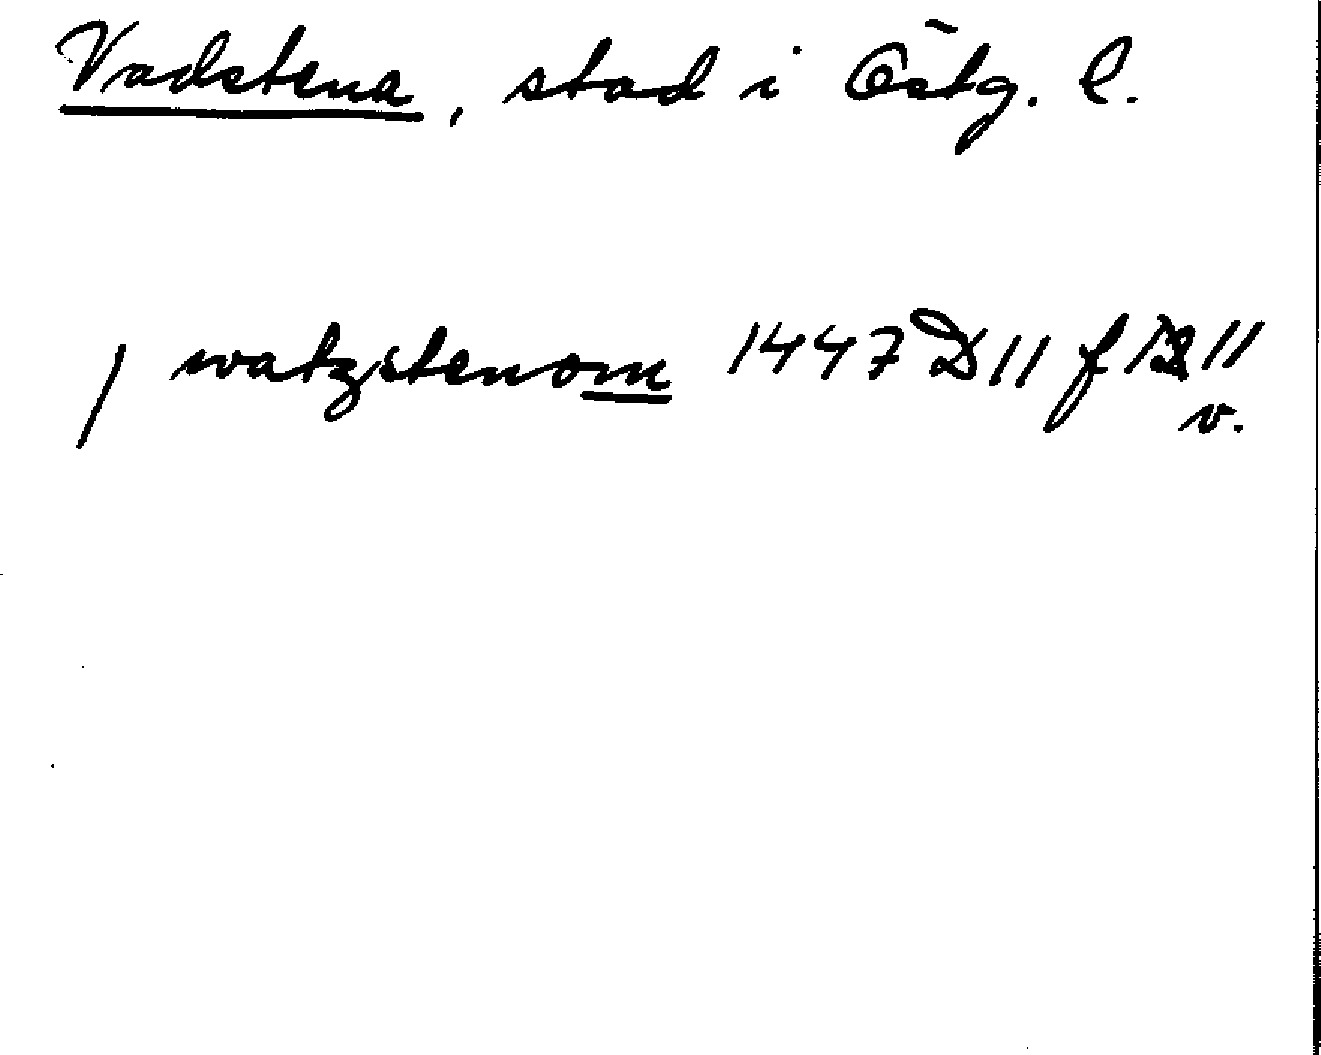 Vadstena, stad i Östg. l.
j watzstenom 1447 D 11 f 11
v.